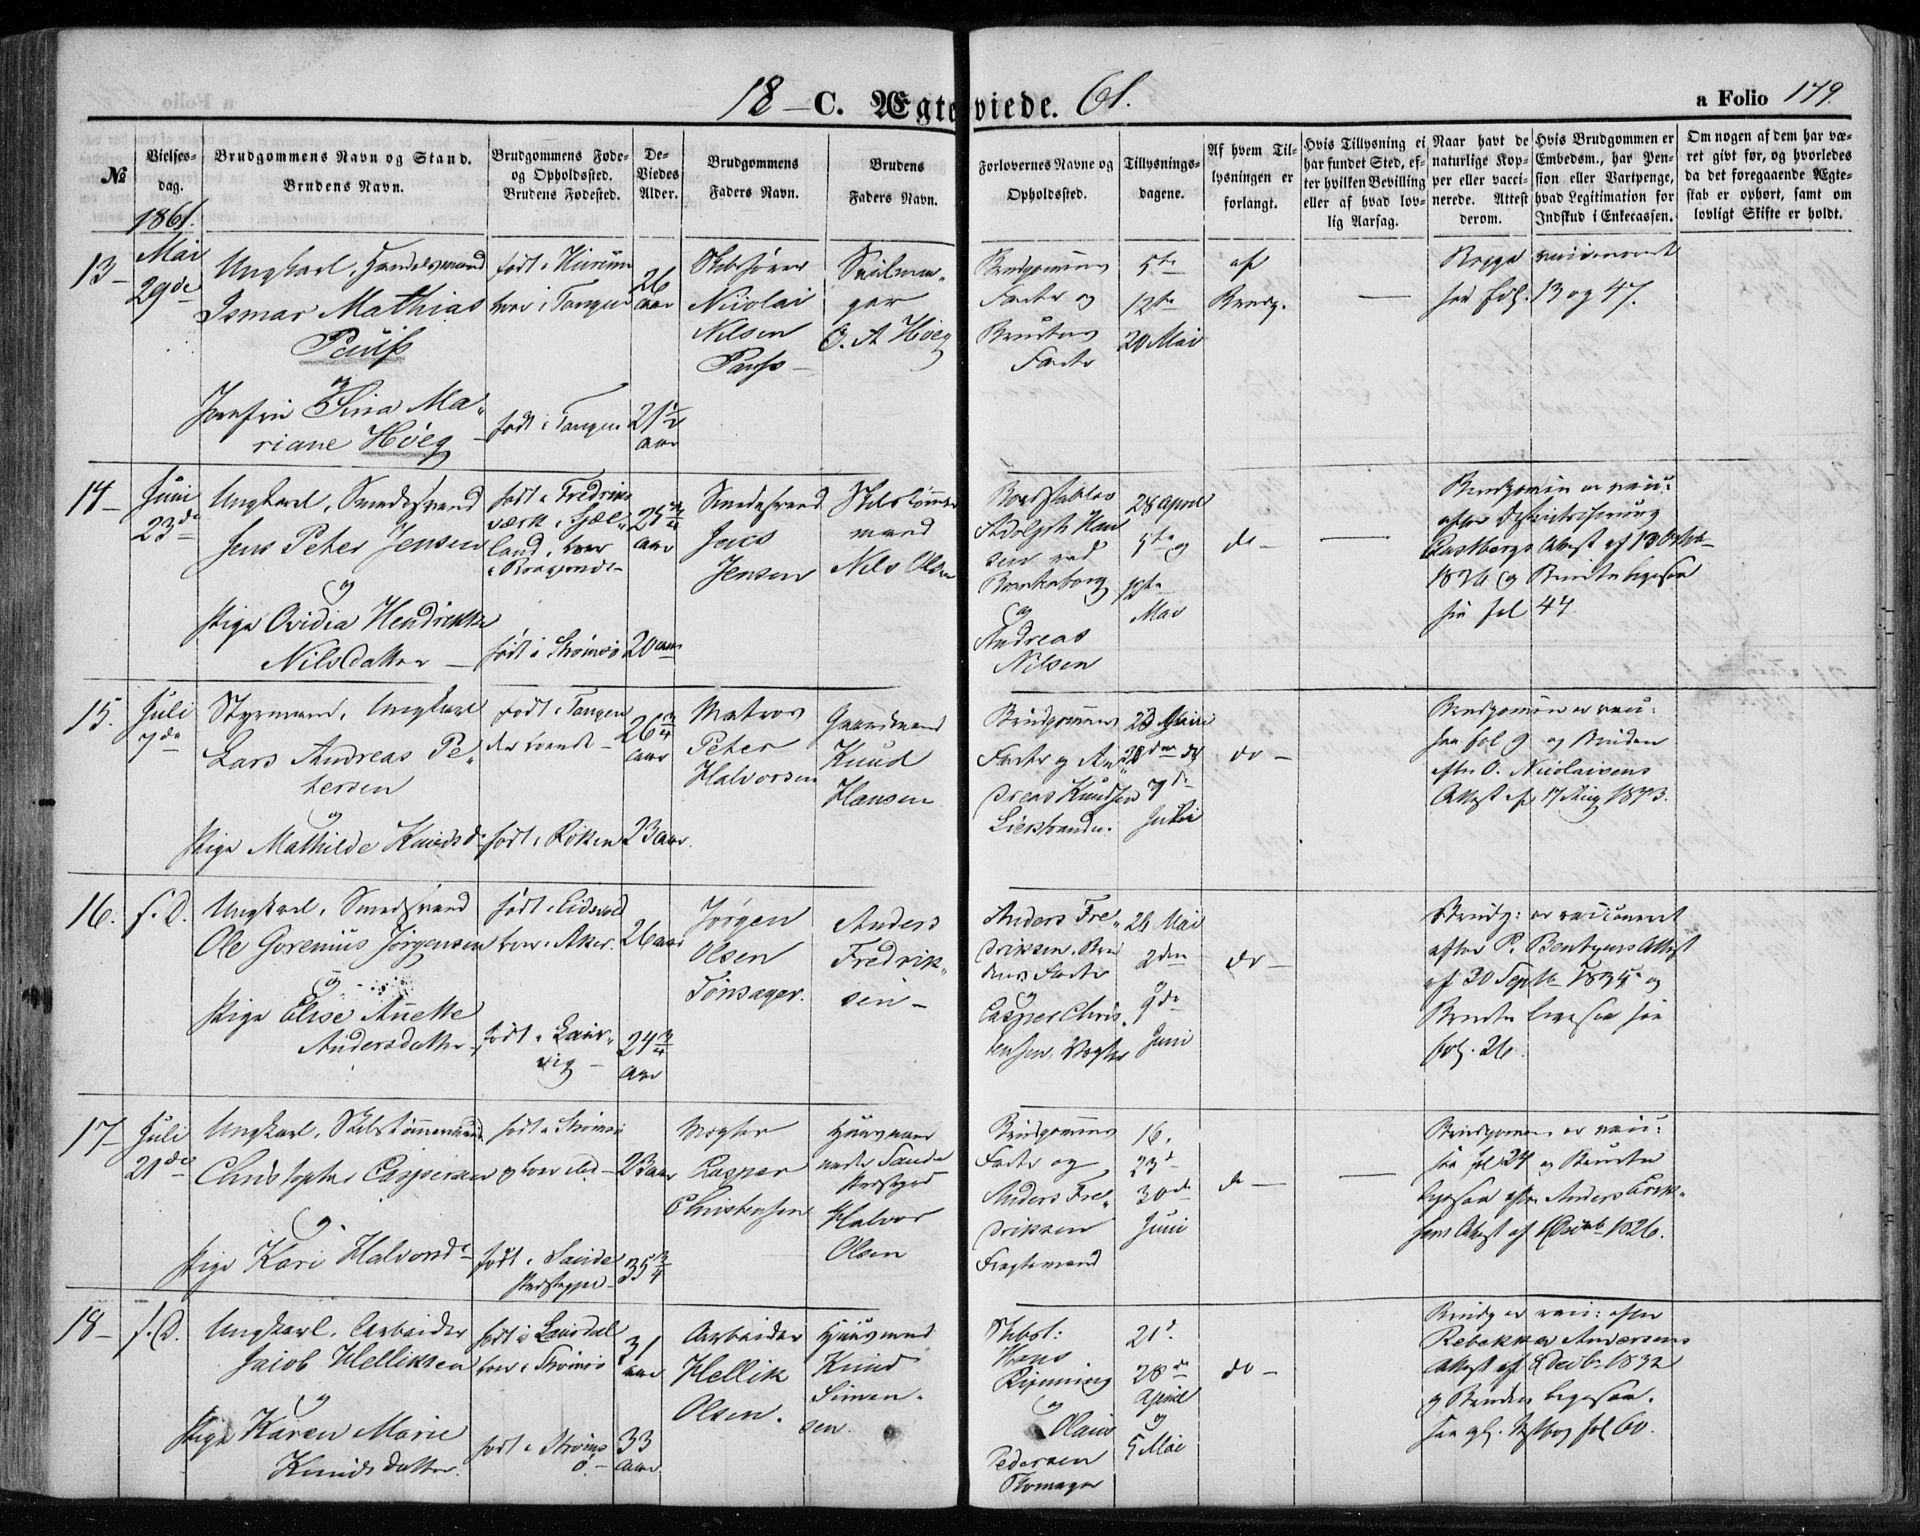 18 – C. Ægteviede. 61.
a Folio 179.
№
Vielses-
dag.
Brudgommens Navn og Stand.
Brudens Navn.
Brudgommens Føde-
og Opholdssted.
Brudens Fødested.
De-
Viedes
Alder.
Brudgommens
Faders Navn.
Brudens
Faders Navn.
Forlovernes Navne og
Opholdssted.
Tillysnings-
dagene.
Af hvem Til-
lysningen er
forlangt.
Hvis Tillysning ei
har fundet Sted, ef-
ter hvilken Bevilling
eller af hvad lov-
lig Aarsag.
Naar havt de
naturlige Kop-
per eller vacci-
nerede. Attest
derom.
Hvis Brudgommen er
Embedsm., har Pen-
sion eller Vartpenge,
hvad Legitimation for
Indskud i Enkecassen.
Om nogen af dem har væ-
ret givt før, og hvorledes
da det foregaaende Ægte-
skab er ophørt, samt om
lovligt Skifte er holdt.
1861.
13 –
Mai
29de
Ungkarl, Handelsmand
Ismar Mathias
Pauss
og
Jomfru Sina Ma-
riane Høeg
født i Hurum
boer i Tangen
født i Tangen
26
aar
21 1/2
aar
Skibsfører
Nicolai
Nilsen
Pauss –
O. A Høeg
Brudgommens
Fader og
Brudens
Fader
5te
12te
20 Mai
af
Brudg.
Begge vaccinerede
see fol. 13 og 47.
14 –
Juni
23de
Ungkarl, Smedesvend
Jens Peter Jensen
og
Pige Ovidia Hendrikke
Nilsdatter –
født i Fredriks
værk i Sjæl-
land, boer
i Bragernes –
født i Strømsø
20 aar
Smedesvend
Jens
Jensen
Skibstømmer
mand
Nils Olsen
Adolph Han
sen ved
og
Andreas
Nilsen
28 April
5te og
12te
Mai
do –
Brudgommen er vacc:
efter
Attest af 13
1836 og Bruden ligesaa
see fol 47.
15.
Juli
7de
Styrmand, Ungkarl
Lars Andreas Pe-
tersen
og
Pige Mathilde Knudsd.
født i Tangen
født i Røken
26 3/4
aar
23 aar.
Matros
Peter
Halvorsen
Gaardmand
Knud
Hansen
Brudgommens
Fader og An-
dreas Knudsen
Lierstranden.
23 Juni
7de
Juli
do –
Brudgommen er vacc:
see fol 9 og Bruden
efter O. Nicolaisens
Attest af 17 Aug 1843.
16.
s. D.
Ungkarl, Smedsvend
Ole Gorenius Jørgensen
og
Pige Elise Anette
Andersdatter
født i Eidsvold
boer i Aker.
født i Laur-
vig –
26 aar
24 3/4
aar
Jørgen
Olsen
Tonsager.
Anders
Fredrik-
sen –
Anders Fre-
driksen, Bru
dens Fader
og
Casper Chris
tensen, Vogter
26 Mai
2den
9de
Juni
do –
Brudg: er vaccineret
efter P. Bentzens Attest
af 30 Septb 1835 og
Bruden ligesaa see
fol. 26.
17 –
Juli
21de
Ungkarl, Skibstømmermand
Christopher Caspersen
og
Pige Kari Halvorsd.
født i Strømsø
født i Sande
Præstegjeld –
23 aar
35 3/4
Vogter
Casper
Christensen
Huusmand
under Sande
Præstegaard
Halvor
Olsen
Brudgommens
Fader og
Anders Fre-
driksen
Fragtemand
16.
23de
30de
Juni
do –
Brudgommen er vacc:
see fol 24 og Bruden
ligesaa efter Anders Erik-
sens Attest af 1826.
18 –
s. D.
Ungkarl, Arbeider
Jacob Helliksen
og
Pige Karen Marie
Knudsdatter.
boer i Strømsø
født i Strøms
ø. –
31
aar
33
aar.
Arbeider
Hellik
Olsen.
Huusmand
Knud
Simen-
sen.
Hans
og
Olaus
Pedersen
21de.
28de
April
og
5 Mai
do –
Brudg er vacc: efter
Rebekka Andersens
Attest af 8 Decbr 1832
og Bruden ligesaa.
fol 60.